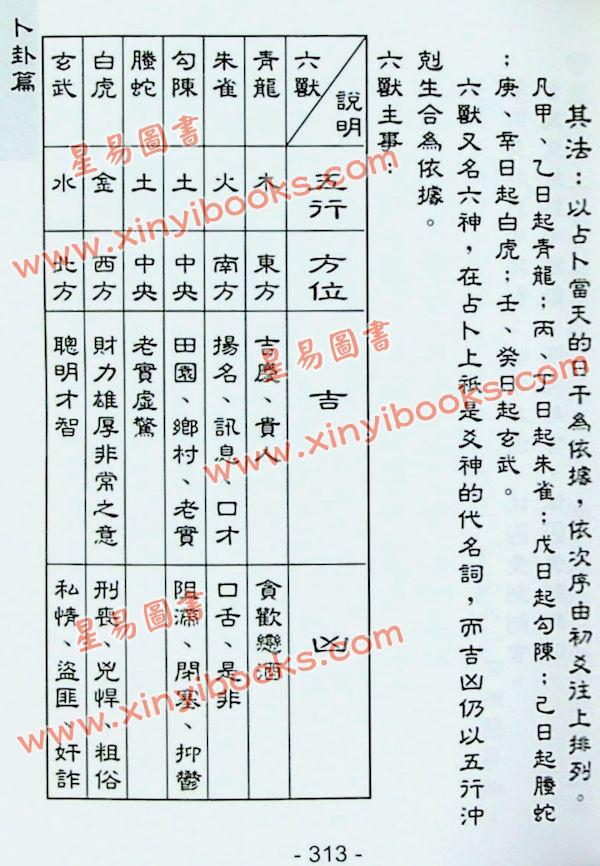 其法：以占卜當天的日干為依據，依次序由初爻往上排列。
凡甲、乙日起青龍；丙、丁日起朱雀；戊日起勾陳；己日起螣蛇
；庚、辛日起白虎；壬、癸日起玄武。
六獸又名六神，在占卜上祇是爻神的代名詞，而吉凶仍以五行沖
剋生合為依據。
六獸主事：
說明 六獸 五行 方位 吉 凶
青龍 木 東方 吉慶、貴人 貪歡戀酒
朱雀 火 南方 揚名、訊息、口才 口舌、是非
勾陳 土 中央 田園、鄉村、老實 阻滯、閉塞、抑鬱
螣蛇 土 中央 老實虛驚
白虎 金 西方 財力雄厚非常之意 刑喪、兇悍、粗俗
玄武 水 北方 聰明才智 私情、盜匪、奸詐
卜卦篇
- 313 -
星易圖書
www.xinyibooks.com
星易圖書
www.xinyibooks.com
星易圖書
www.xinyibooks.com